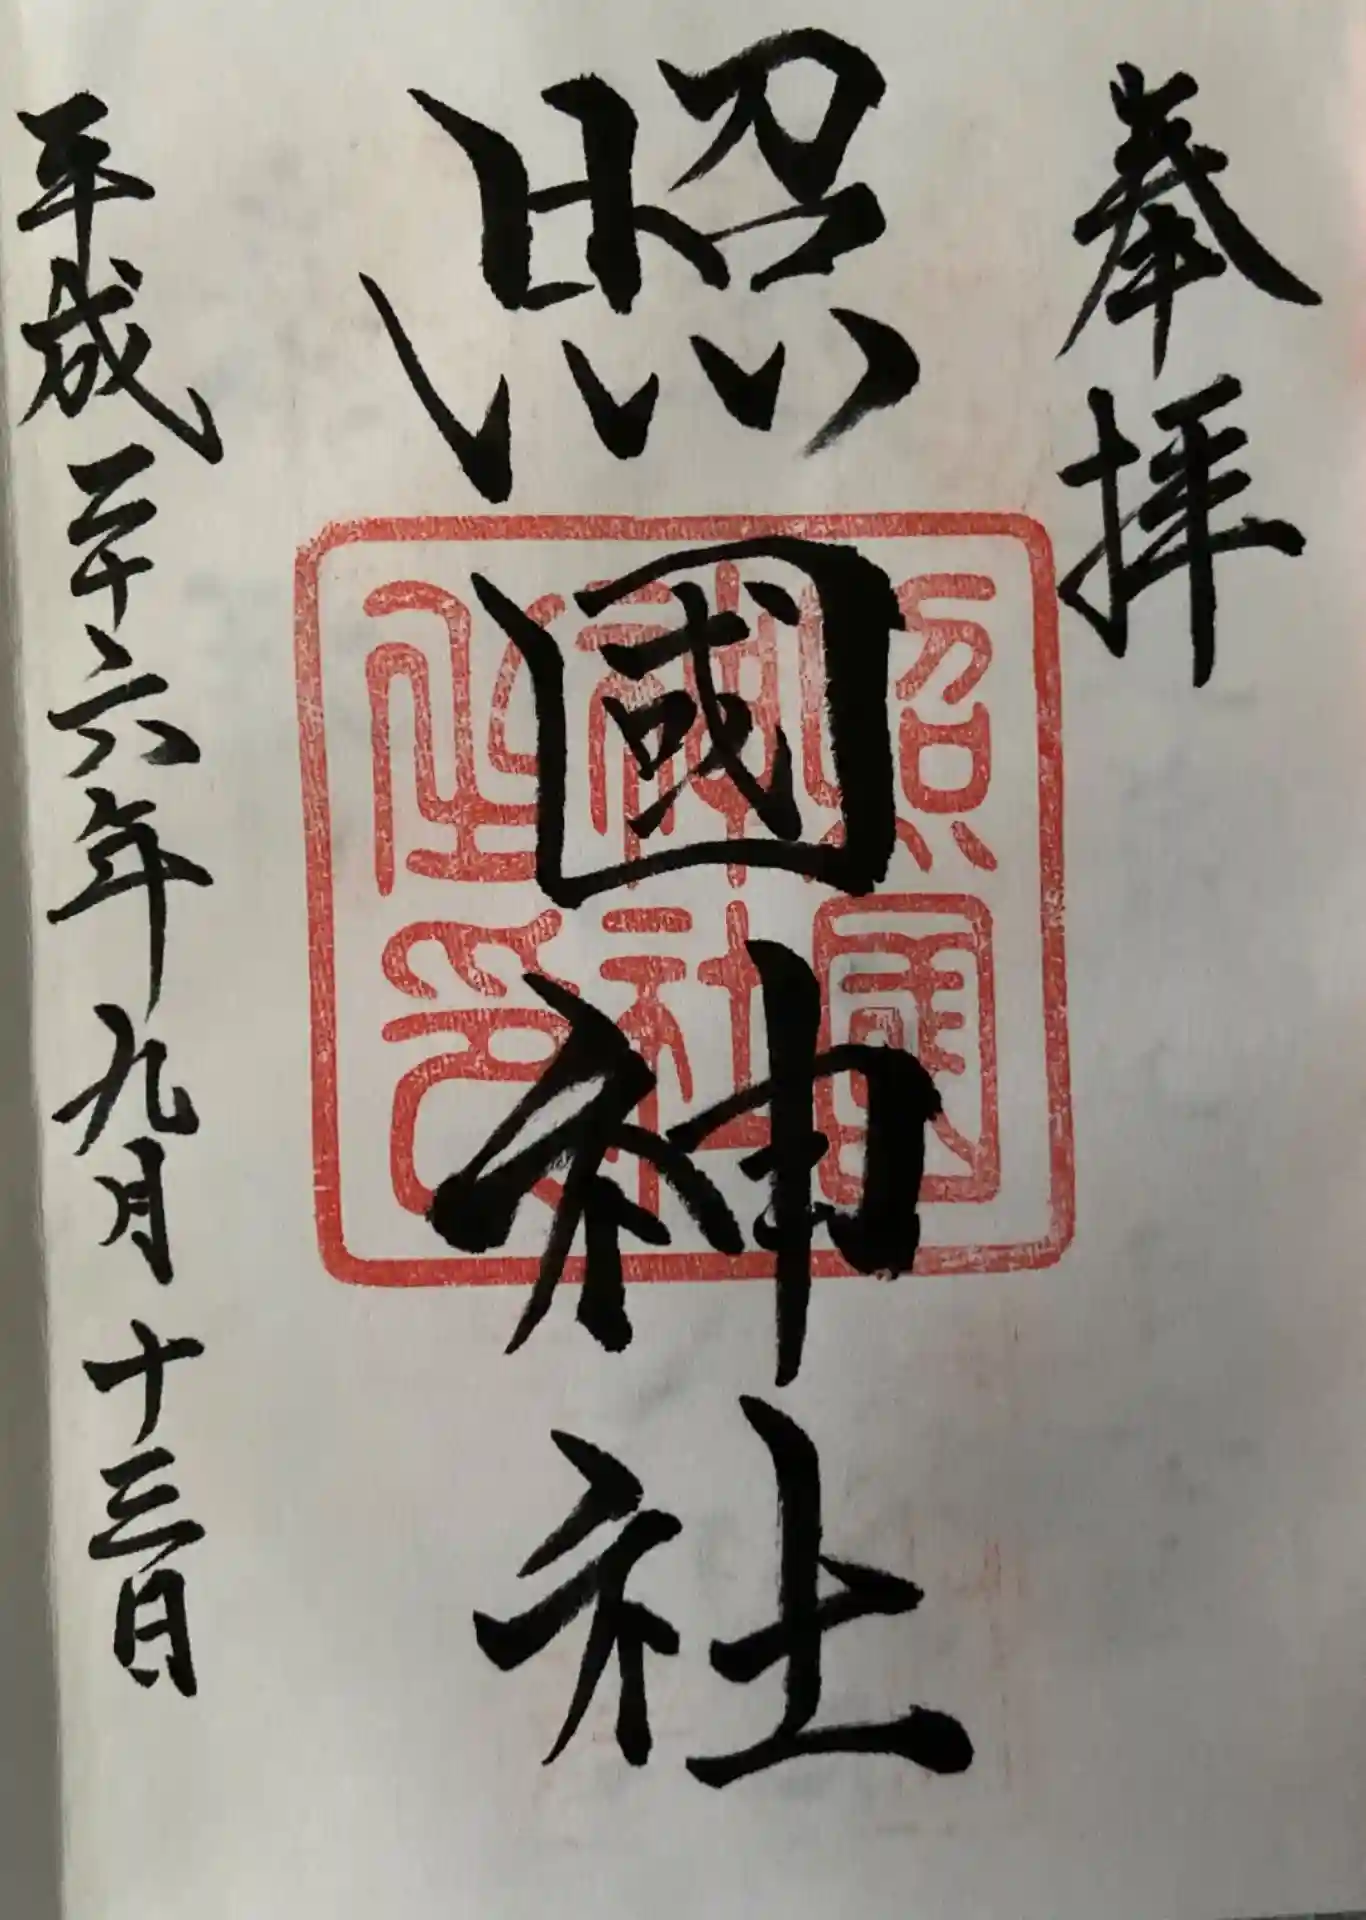 奉拝
照國神社
照國
神社
之印
平成二十六年九月十三日